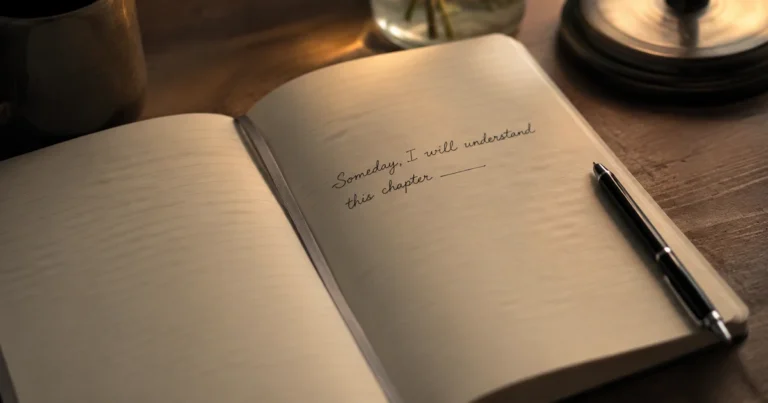 Someday, I will understand
this chapter ——